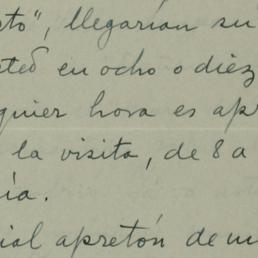 sto", llegarían su
sted en ocho o diez
quier hora es ap
la visita, de 8 a
ía.
ial apretón de m